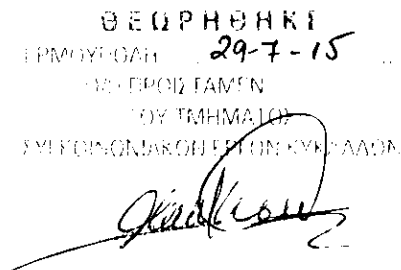 ΘΕΩΡΗΘΗΚΕ
ΕΡΜΟΥΠΟΛΗ 29-7-15
ΠΡΟΪΣΤΑΜΕΝ
ΤΟΥ ΤΜΗΜΑΤΟΣ
ΣΥΓΚΟΙΝΩΝΙΑΚΩΝ ΕΡΓΩΝ ΚΥΚΛΑΔΩΝ